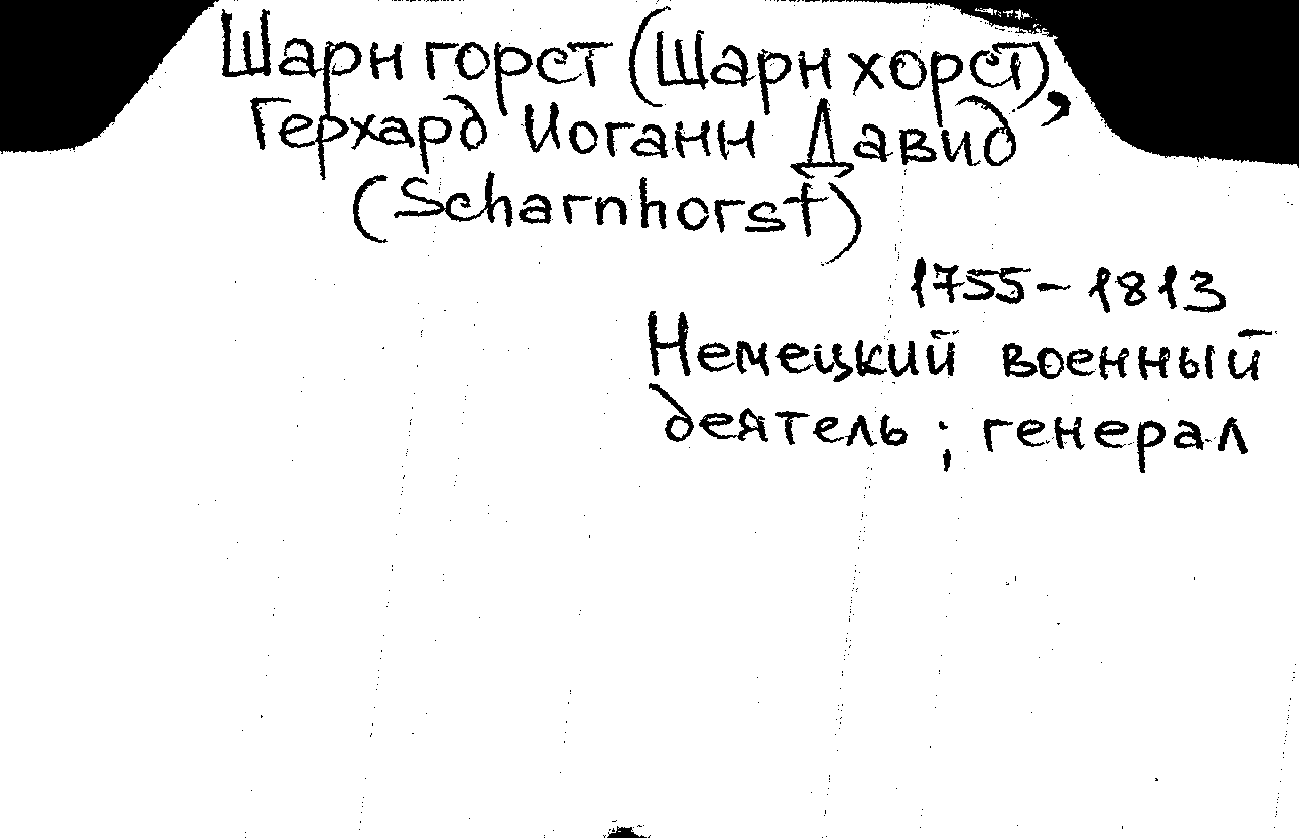 Шарнгорст (Шарнхорст),
Герхард Иоганн Давид
(Scharnhorst)
1755–1813
Немецкий военный
деятель; генерал